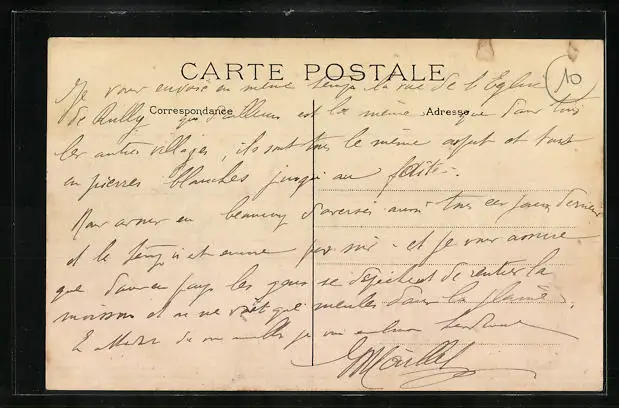 CARTE POSTALE
10
Correspondance
Adresse
Je vous envoie en même temps la vue de l'Eglise
de Rully qui d'ailleurs est la même que dans tous
les autres villages, ils sont tous le même aspect et tout
en pierres blanches jusqu'au
Nous avons eu beaucoup d'averses aussi tous ces jours derniers
et le temps est encore pas sûr - et je vous assure
que dans ce pays les gens se dépêchent de rentrer la
moisson et on ne voit que meules dans la plaine.
En de vos nouvelles je vous embrasse